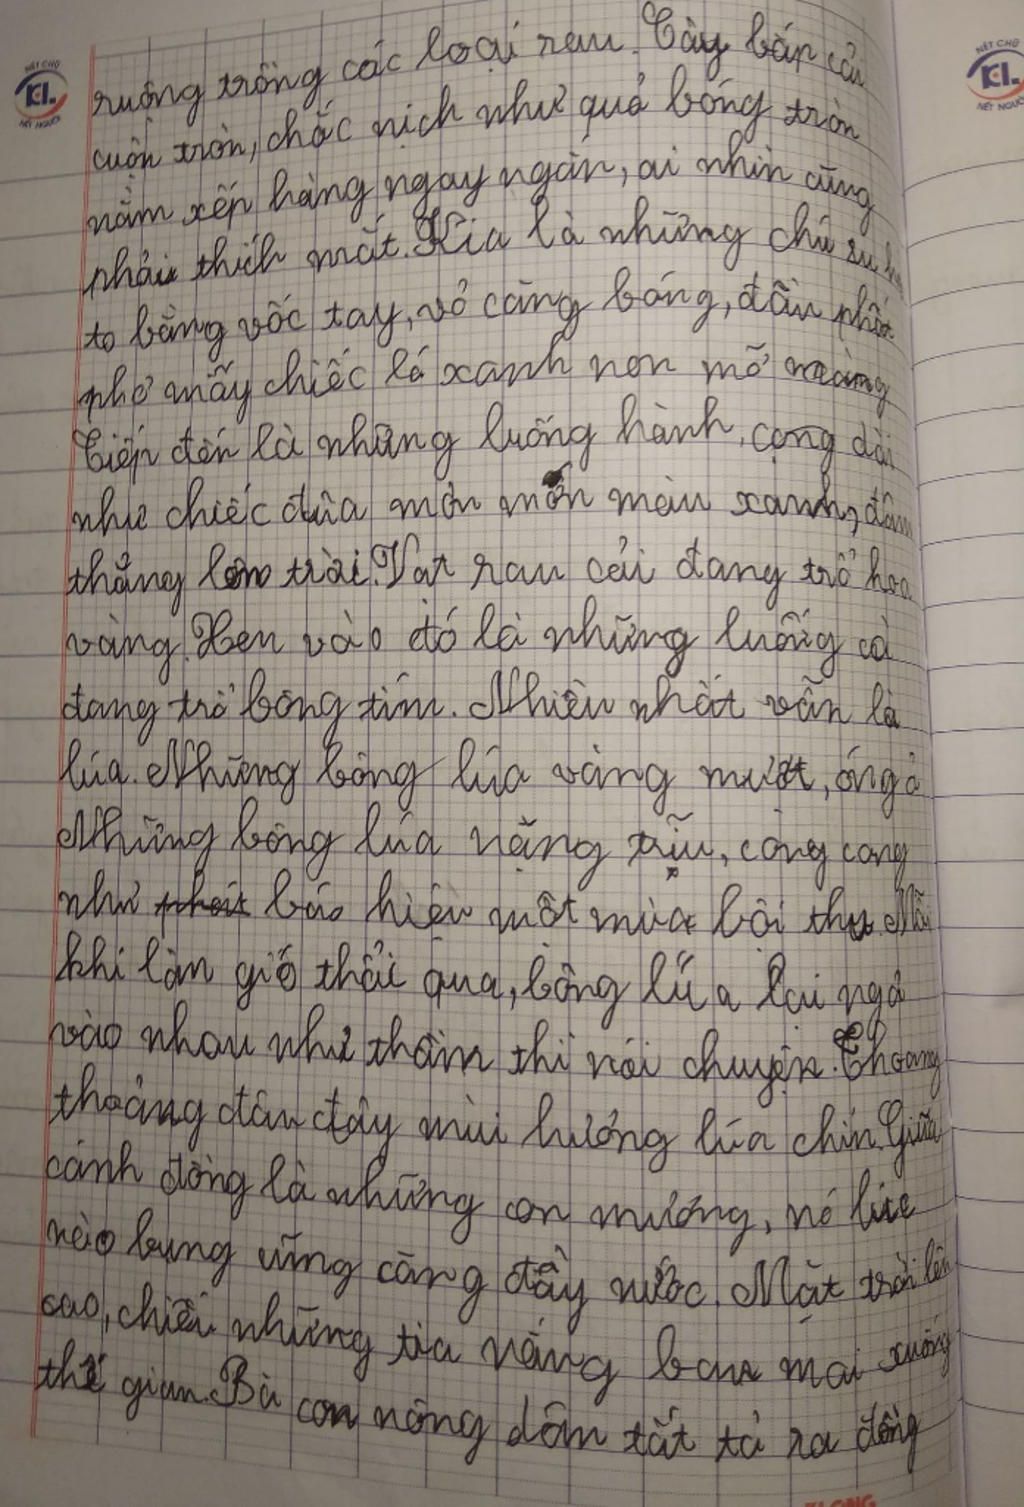 NÉT CHỮ
KL
NẾT NGƯỜI
NÉT CHỮ
KL
NẾT NGƯỜI
ruộng trồng các loại rau. Cây bắp cải
cuộn tròn, chắc nịch như quả bóng tròn
nằm xếp hàng ngay ngắn, ai nhìn cũng
phải thích mắt. Kia là những chú su hào
to bằng vốc tay, vỏ căng bóng, đầu phất
phơ mấy chiếc lá xanh non mỡ màng
Tiếp đến là những luống hành, cọng dài
như chiếc đũa mơn mởn màu xanh, đâm
thẳng lên trời. Vạt rau cải đang trổ hoa
vàng. Xen vào đó là những luống cà
đang trổ bông tím. Nhiều nhất vẫn là
lúa. Những bông lúa vàng mượt, óng ả
Những bông lúa nặng trĩu, cong cong
như báo hiệu một mùa bội thu. Mỗi
khi làn gió thổi qua, bông lúa lại ngả
vào nhau như thầm thì nói chuyện. Thoang
thoảng đâu đây mùi hương lúa chín. Giữa
cánh đồng là những con mương, nó lúc
nào bụng cũng căng đầy nước. Mặt trời lên
cao, chiếu những tia nắng ban mai xuống
thế gian. Bà con nông dân tất tả ra đồng